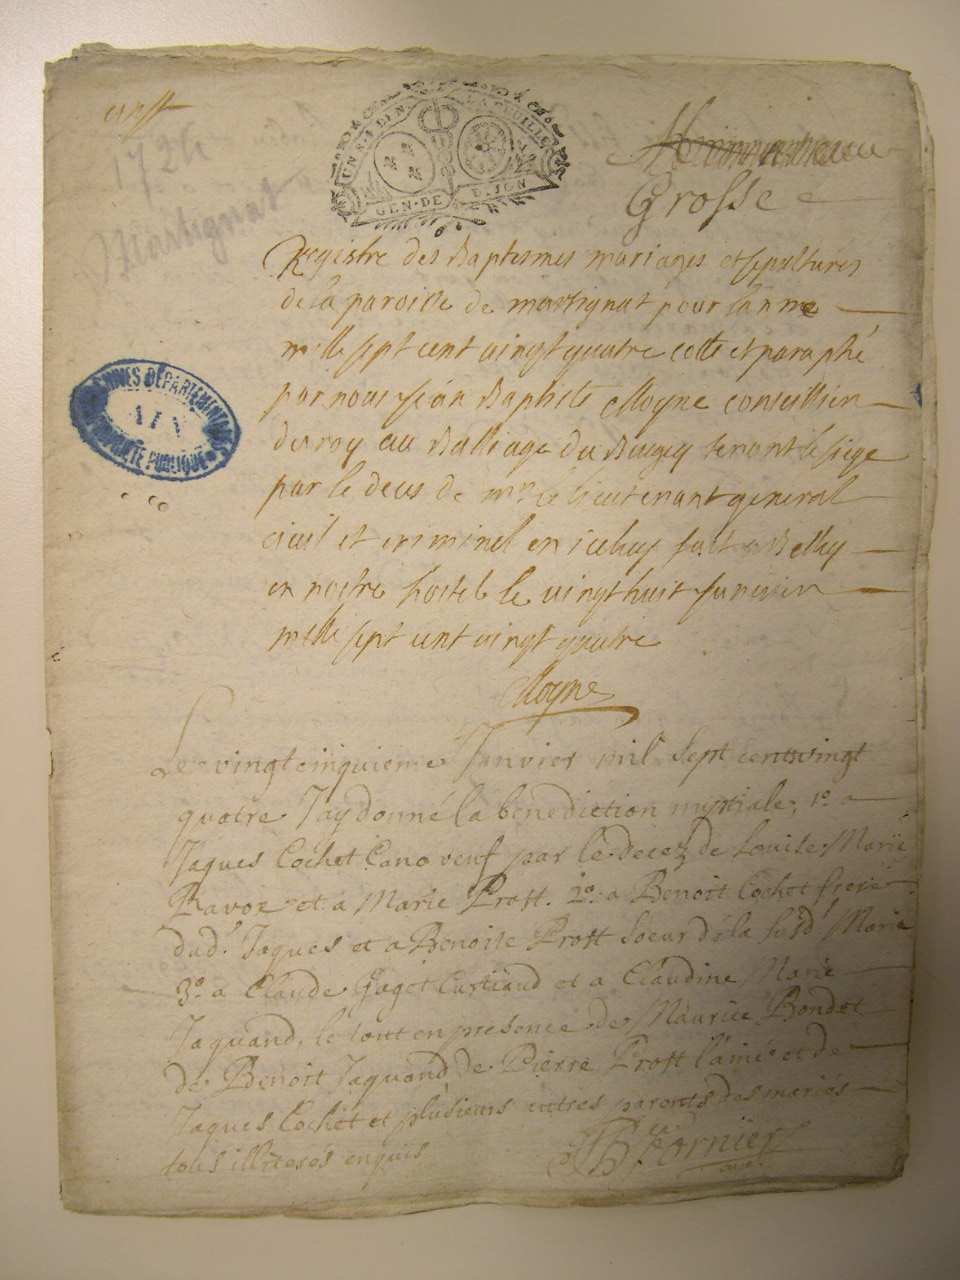 1724
Martignat
UN S. 4 DEN. LA FEUILLE
GEN. DE DIJON
Grosse
Registre des Baptesmes mariages et sepultures
de la paroisse de martignat pour lannee
mille sept cent vingt quatre cotte et paraphé
par nous jean Baptiste Moyne conseillier
du roy au Balliage du Bugey tenant le siege
par le deces de mr. le lieutenant general
civil et criminel en iceluy fait a Belley
en nostre hostel le vingt huit janvier
mille sept cent vingt quatre
Moyne
ARCHIVES DÉPARTEMENTALES
AIN
PROPRIÉTÉ PUBLIQUE
Le vingt cinquieme Janvier mil sept cents vingt
quatre Jay donné la benediction nuptiale; 1o. a
Jaques Cochet Cano veuf par le decez de Louise Marie
Ravoz et a Marie Prost. 2o. a Benoit Cochet frere
dud. Jaques et a Benoite Prost Soeur de la susd. Marie
3o. a Claude Gaget Curtiaud et a Claudine Marie
Jaquand, le tout en presence de Maurice Bondet
de Benoit Jaquand de Pierre Prost l'ainé et de
Jaques Cochet et plusieurs autres parents des mariés
tous illiterés enquis
Fornier
curé